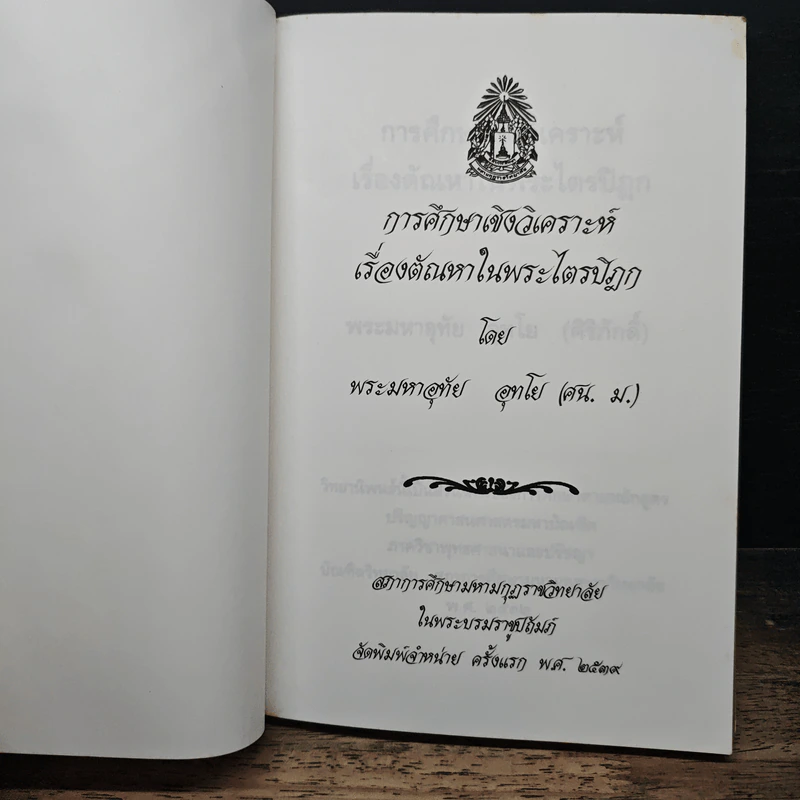 การศึกษาเชิงวิเคราะห์
เรื่องตัณหาในพระไตรปิฎก
โดย
พระมหาอุทัย อุทโย (ศน. ม.)
สภาการศึกษามหามกุฏราชวิทยาลัย
ในพระบรมราชูปถัมภ์
จัดพิมพ์จำหน่าย ครั้งแรก พ.ศ. ๒๕๓๙